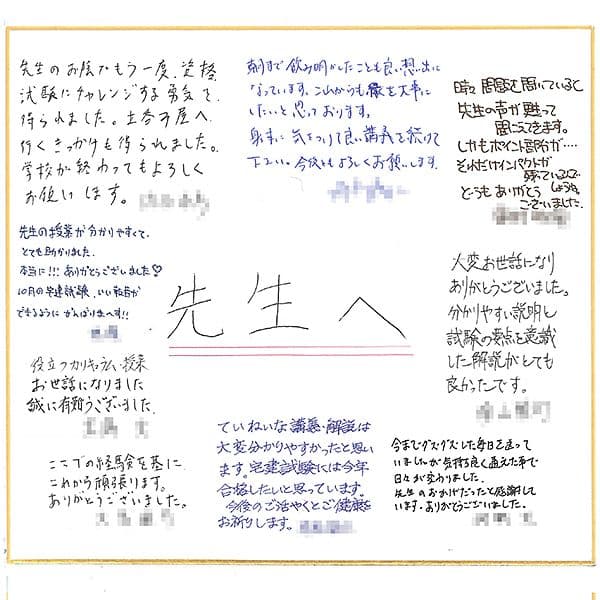 先生のお陰でもう一度、資格
試験にチャレンジする勇気を
得られました。土台から屋へ
行くきっかけも得られました。
学校が終わってもよろしく
お願いします。
朝まで飲み明かしたことも良い想い出に
なっています。これからも縁を大事に
したいと思っております。
身体に気をつけて良い講義を続けて
下さい。今後もよろしくお願いします。
時々問題を聞いていると
先生の声が甦って
聞こえてきます。
しかもポイント部分が…。
それだけインパクトが
残っているので
しょうね。
どうもありがとう
ございました。
先生の授業が分かりやすくて、
とても助かりました。
本当に!!! ありがとうございました♡
10月の宅建試験、いい報告が
できるように がんばりまーす!!
先生へ
大変お世話になり
ありがとうございました。
分かりやすい説明と
試験の要点を意識
した解説がとても
良かったです。
役立つカリキュラム、授業
お世話になりました
誠に有難うございました。
ここでの経験を基に
これから頑張ります。
ありがとうございました。
ていねいな講義・解説は
大変分かりやすかったと思い
ます。宅建試験には今年
合格したいと思っています。
今後のご活やくとご健康を
お祈りします。
今までグズグズした毎日を送って
いましたが気持ち良く通えた事で
日々が変わりました。
先生のおかげだったと感謝して
います。ありがとうございました。